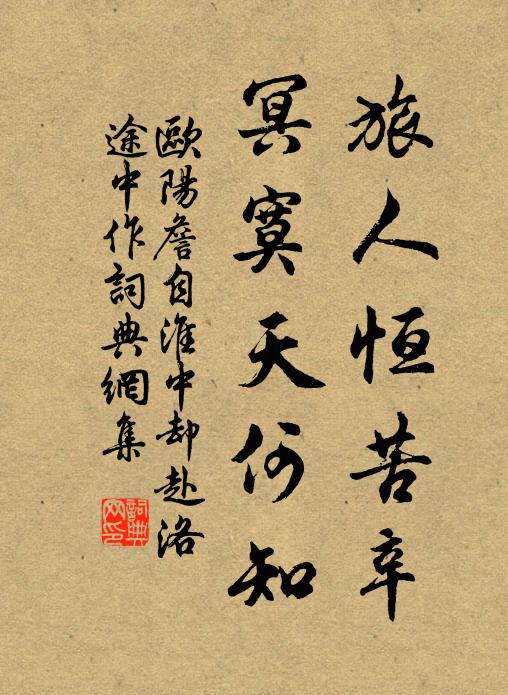 旅人恒苦辛
冥寞天何知
歐陽詹自淮中却赴洛
途中作詞典網集
詞典
网印